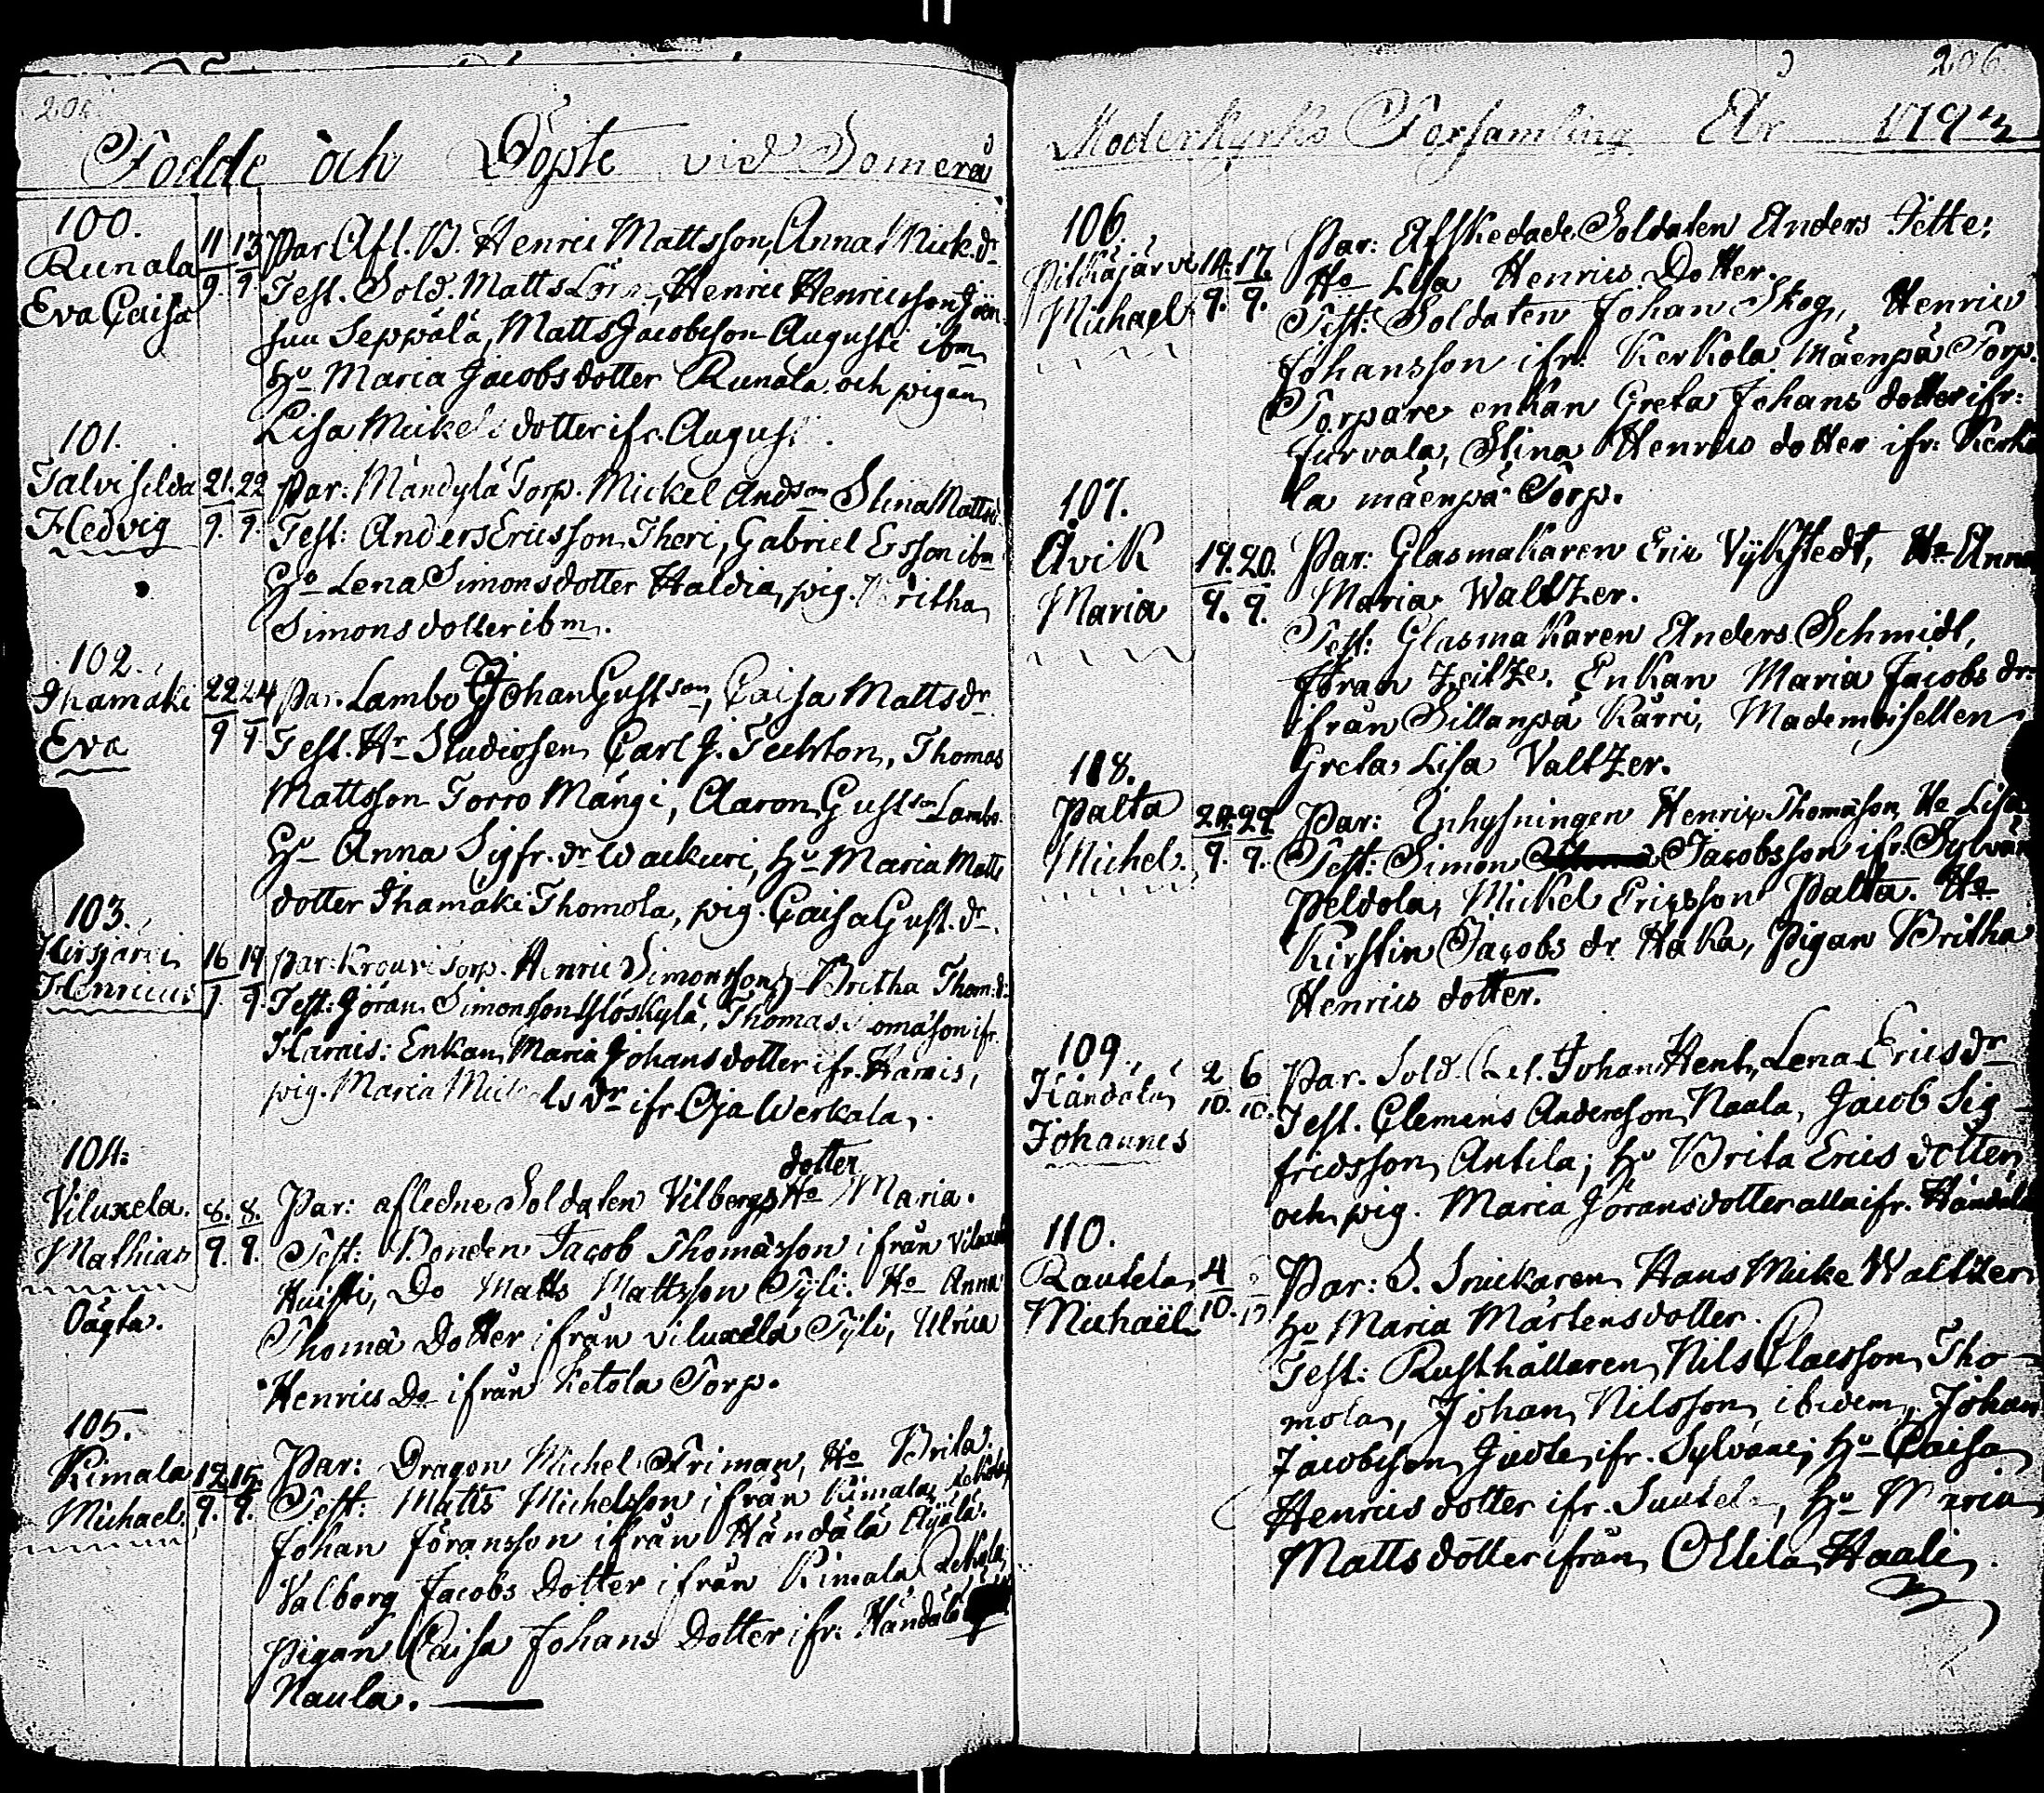 206
Födde och Döpte vid Somerå
100.
Runala
Eva Caisa
11 13
9. 9.
Par Afl. B. Henric Mattsson, Anna Mick. dr
Test. Sold. Matts Henric Henricsson
suu Seppälä, Matts Jacobsson Augusti ibm
Hu Maria Jacobsdotter Runala och pigan
Lisa Mickelsdotter ifr. August
101.
Talvisilda
Hedvig
21. 22
9. 9.
Par: Mändylä Torp. Mickel Andson Stina Matts
Test: Anders Ericsson Theri, Gabriel Ersson ibm
Hu Lena Simonsdotter Haldia, pig. Britha
Simonsdotter ibm.
102.
Ihamäki
Eva
22 24
9 9
Par. Lambo Johan Gustson, Caisa Mattsdr
Test. Hr Studiosen Carl J. Thomas
Mattsson Torro Mängi, Aaron Gustson Lambo
Hu Anna Sigfr. dr Wackuri, Hu Maria Matts
dotter Ihamäki Thomola, pig. Caisa Gust. dr.
103.
Hirsjärvi
Henricus
16 19
9. 9.
Par: Krouvi Torp. Henric Simonsson, Britha Thom. d:
Test: Göran Simonsson Thomas ifr.
Harais: Enkan Maria Johansdotter ifr. Harais,
pig. Maria Mickelsdr ifr Oja Werkala.
104.
Viluxela.
Mathias
Oägta.
8. 8.
9. 9.
dotter
Par: afledne Soldaten Vilbergs Ho Maria.
Test: Bonden Jacob Thomasson ifrån Viluxela
Huisti, Do Matts Mattsson Tÿli. Ho Anna
Thomæ Dotter ifrån Viluxela Tÿli, Ulrica
Henrics Do ifrån Ketola Torp.
105.
Kimala
Michael.
12 15
9. 9.
Par: Dragon Michel Friman, Ho Brita.
Test: Matts Michelsson ifrån Kimala
Johan Jöransson ifrån Händälä Äÿälä.
Valborg Jacobs Dotter ifrån Kimala
Pigan Caisa Johans Dotter ifr: Händälä
Naula.
206.
Moderkyrko Församling År 179
106.
Pitkäjärvi
Michael
14. 17.
9. 9.
Par: Afskedade Soldaten Anders Jette;
Ho Lisa Henrics Dotter.
Test: Soldaten Johan Skog, Henric
Johansson ifr: Kerkola Mäenpä Torp.
Torpare enkan Greta Johans dotter ifr:
Jurvala, Stina Henrics dotter ifr: Kerko
la mäenpä Torp.
107.
Åvik
Maria
19. 20.
9. 9.
Par: Glasmakaren Eric Vÿkstedt, Ho Anna
Maria Waltzer.
Test: Glasmakaren Anders Schmidt,
Jöran Zeitze. Enkan Maria Jacobs dr.
ifrån Sillanpä Kärri, Mademoisellen
Greta Lisa Valtzer.
118.
Palta
Michel.
24. 29
9. 9.
Par: Inhysningen Henric Thomasson, Ho Lisa
Test: Simon Jacobsson ifr. Sylvän
Peldola, Mickel Ericsson Palta. Ho
Kirstin Jacobs dr Haka, Pigan Britha
Henrics dotter.
109.
Händälä
Johannes
2 6
10. 10.
Par. Sold. Johan Hent, Lena Ericsdr
Test. Clemens Andersson Naala, Jacob Sig-
fridsson Antila; Hu Brita Erics dotter
och pig. Maria Göransdotter alla ifr. Händälä
110.
Rautela
Michaël
4
10.
Par: S. Snickaren Hans Mickel Waltzer
Hu Maria Mårtensdotter.
Test: Rusthållaren Nils Claesson Tho-
mola, Johan Nilsson ibidem, Johan
Jacobsson ifr. Sylvane; Hu Caisa
Henricsdotter ifr. Hu Maria
Mattsdotter ifrån Ollila Haali.